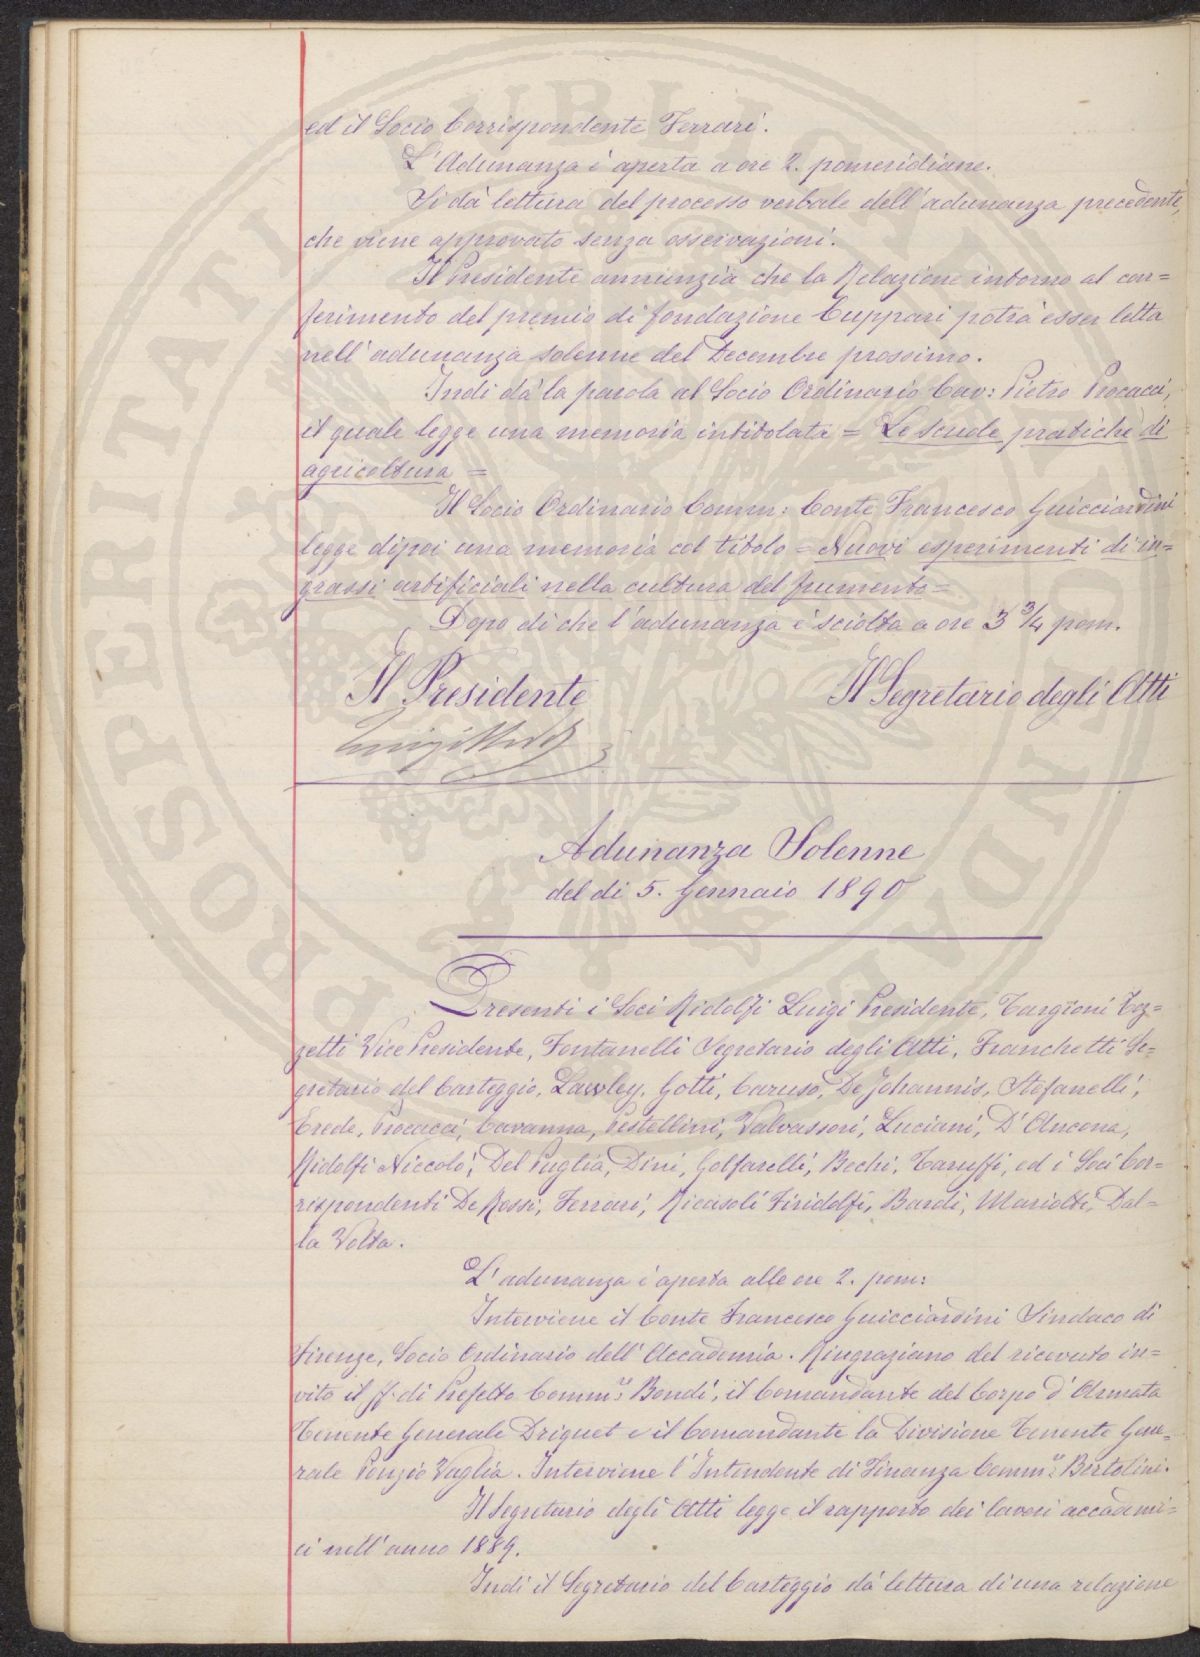 ed il Socio Corrispondente Ferrari.
L'Adunanza è aperta a ore 2. pomeridiane.
Si dà lettura del processo verbale dell'adunanza precedente,
che viene approvato senza osservazioni.
Il Presidente annunzia che la Relazione intorno al con=
ferimento del premio di fondazione Cuppari potrà esser letta
nell'adunanza solenne del Decembre prossimo.
Indi dà la parola al Socio Ordinario Cav: Pietro Procacci,
il quale legge una memoria intitolata = Le Scuole pratiche di
agricoltura =
Il Socio Ordinario Comm: Conte Francesco Guicciardini
legge dipoi una memoria col titolo = Nuovi esperimenti di in=
grassi artificiali nella cultura del frumento =
Dopo di che l'adunanza è sciolta a ore 3 3/4 pom.
Il Presidente Il Segretario degli Atti
Adunanza Solenne
del di 5. Gennaio 1890
Presenti i Soci Ridolfi Luigi Presidente, Targioni Toz=
zetti Vice Presidente, Fontanelli Segretario degli Atti, Franchetti Se=
gretario del Carteggio, Lawley, Gotti, Caruso, De Johannis, Stefanelli,
Erede, Procacci, Cavanna, Pestellini, Valvassori, Luciani, D'Ancona,
Ridolfi Niccolò, Del Puglia, Dini, Golfarelli, Bechi, Taruffi, ed i Soci Cor=
rispondenti De Rossi, Ferrari, Ricasoli Firidolfi, Bardi, Mariotti, Dal=
la Volta.
L'adunanza è aperta alle ore 2. pom:
Interviene il Conte Francesco Guicciardini Sindaco di
Firenze, Socio Ordinario dell'Accademia. Ringraziano del ricevuto in=
vito il ff. di Prefetto Comm.re Bondi, il Comandante del Corpo d'Armata
Tenente Generale Driquet e il Comandante la Divisione Tenente Gene=
rale Ponzio Vaglia. Interviene l'Intendente di Finanza Comm.re Bertolini.
Il Segretario degli Atti legge il rapporto dei lavori accademi=
ci nell'anno 1889.
Indi il Segretario del Carteggio dà lettura di una relazione
PROSPERITATI PUBLICAE AUGENDAE